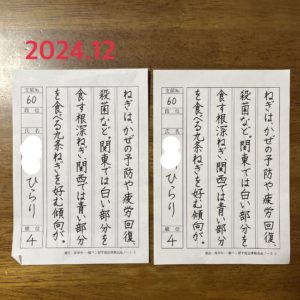 2024.12
ねぎは、かぜの予防や疲労回復、
殺菌など、関東では白い部分を
食す根深ねぎ、関西では青い部分
を食べる九条ねぎを好む傾向が。
60
段位
氏名
ひらり
順位
4
ねぎは、かぜの予防や疲労回復、
殺菌など、関東では白い部分を
食す根深ねぎ、関西では青い部分
を食べる九条ねぎを好む傾向が。
60
段位
氏名
ひらり
順位
4